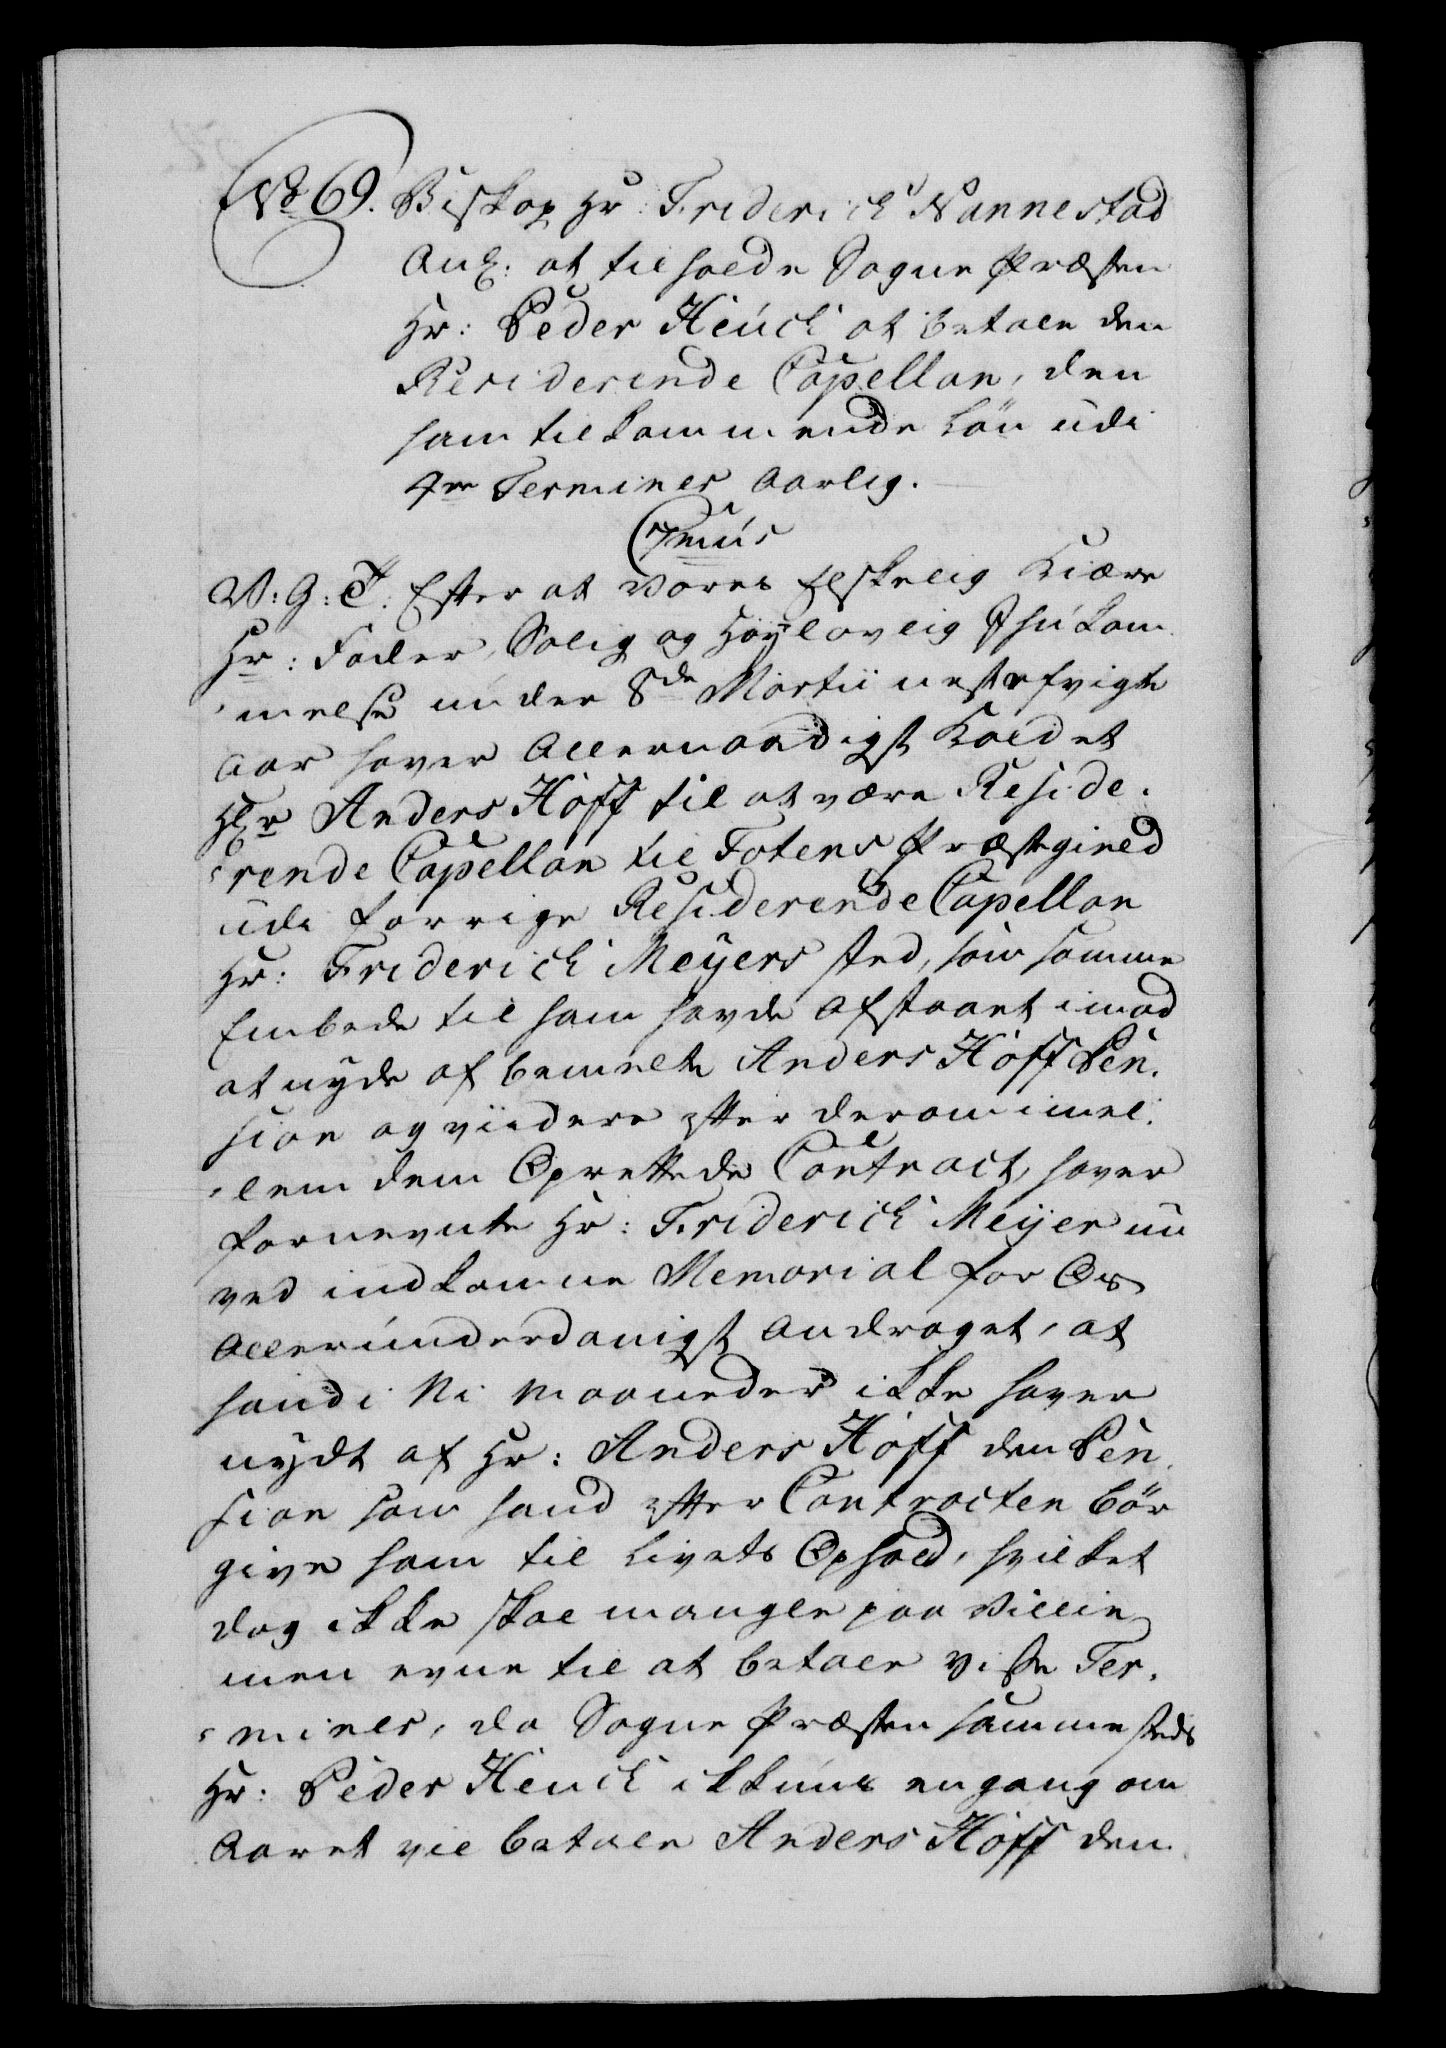 No 69. Biskop Hr: Friderich Nannestad
Anl: at tilholde Sogne Præsten
Hr: Peder Heuch at betale den
Residerende Capellan, den
ham tilkommende Lön udi
4re Terminer Aarlig.
Cmus
V: G: T: Efter at Vores Elskelig Kiære
Hr: Fader, Salig og Höylovlig Ihukom
melse under 8de Martii nestafvigte
Aar haver Allernaadigst Kaldet
Hr Anders Hoff til at være Reside-
rende Capellan til Totens Præstegield
udi forrige Residerende Capellan
Hr: Friderich Meyers sted, som samme
Embede til ham havde Afstaaet imod
at nyde af bemelte Anders Hoff Pen-
sion og viidere efter derom imel-
lem dem Oprettede Contract, haver
fornevnte Hr: Friderich Meyer nu
ved indkomne Memorial for Os
Allerunderdanigst Andraget, at
hand i Ni Maaneder ikke haver
nydt af Hr: Anders Hoff den Pen
sion som hand efter Contracten bör
give ham til Livets Ophold, hvilket
dog ikke skal mangle paa Villie
men evne til at betale visse Ter-
miner, da Sogne Præsten sammesteds
Hr: Peder Heuch ikkuns engang om
Aaret vil betale Anders Hoff den